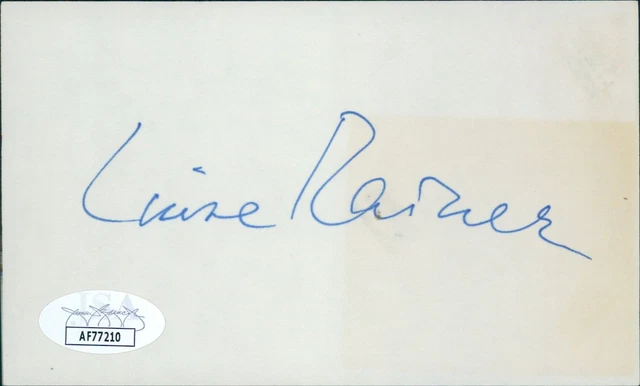 Luise Rainer
JSA
AF77210